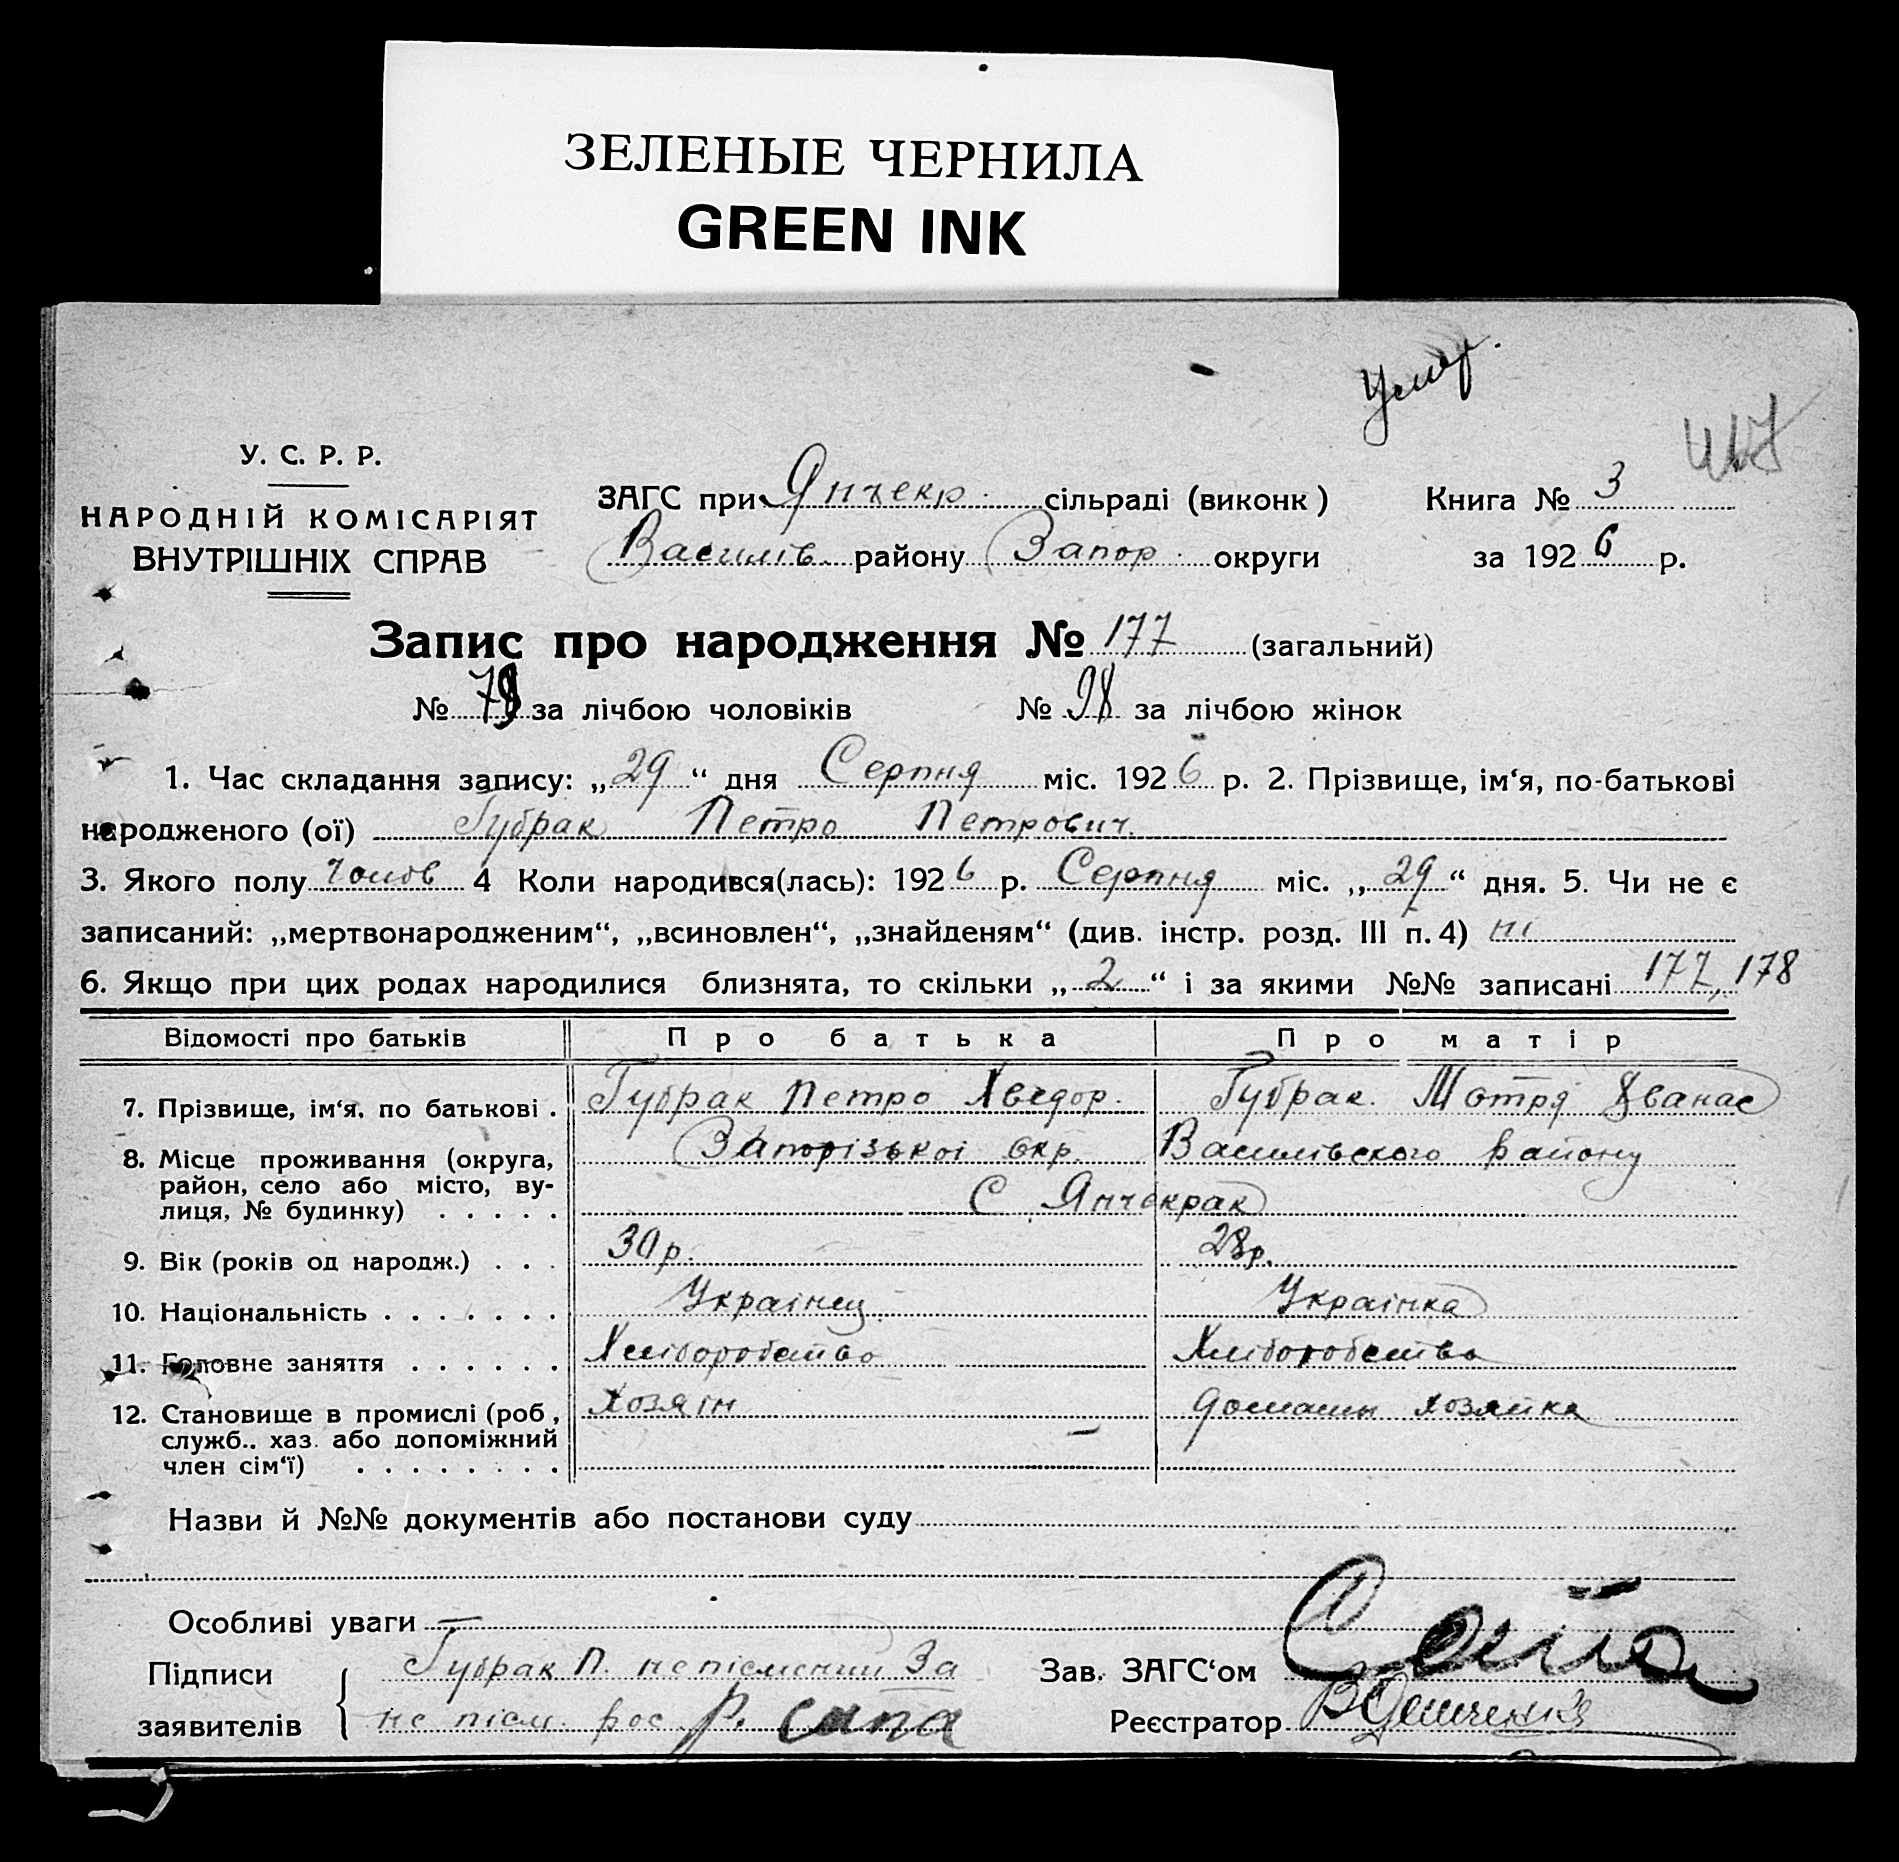 ЗЕЛЕНЫЕ ЧЕРНИЛА
GREEN INK
Умер.
У. С. Р. Р.
НАРОДНІЙ КОМІСАРІЯТ
ВНУТРІШНІХ СПРАВ
ЗАГС при Янчекр. сільраді (виконк) Книга № 3
Василів. району Запор. округи за 1926 р.
Запис про народження № 177 (загальний)
№ 79 за лічбою чоловіків № 98 за лічбою жінок
1. Час складання запису: „29“ дня Серпня міс. 1926 р. 2. Прізвище, ім‘я, по-батькові
народженого (ої) Губрак Петро Петрович
3. Якого полу чолов 4 Коли народився(лась): 1926 р. Серпня міс. „29“ дня. 5. Чи не є
записаний: „мертвонародженим“, „всиновлен“, „знайденям“ (див. інстр. розд. III п. 4) ні
6. Якщо при цих родах народилися близнята, то скільки „2“ і за якими №№ записані 177, 178
Відомості про батьків Про батька Про матір
7. Прізвище, ім‘я, по батькові . Губрак Петро Хведор. Губрак. Мотря Іванас
8. Місце проживання (округа, Запорізькоі окр. Василівского району
район, село або місто, ву-
лиця, № будинку) . . . . . С Янчекрак
9. Вік (років од народж.) . . . 30 р. 28 р.
10. Національність . . . . . . . Украінец Украінка
11. Головне заняття . . . . . . Хліборобство Хліборобство
12. Становище в промислі (роб, хозяін домашн хозяйка
служб., хаз. або допоміжний –
член сім‘ї) . . . . . . . .
Назви й №№ документів або постанови суду
Особливі уваги
Підписи Губрак П. неписменний За Зав. ЗАГС‘ом
заявителів не писм. рос Р. Сипа Реєстратор